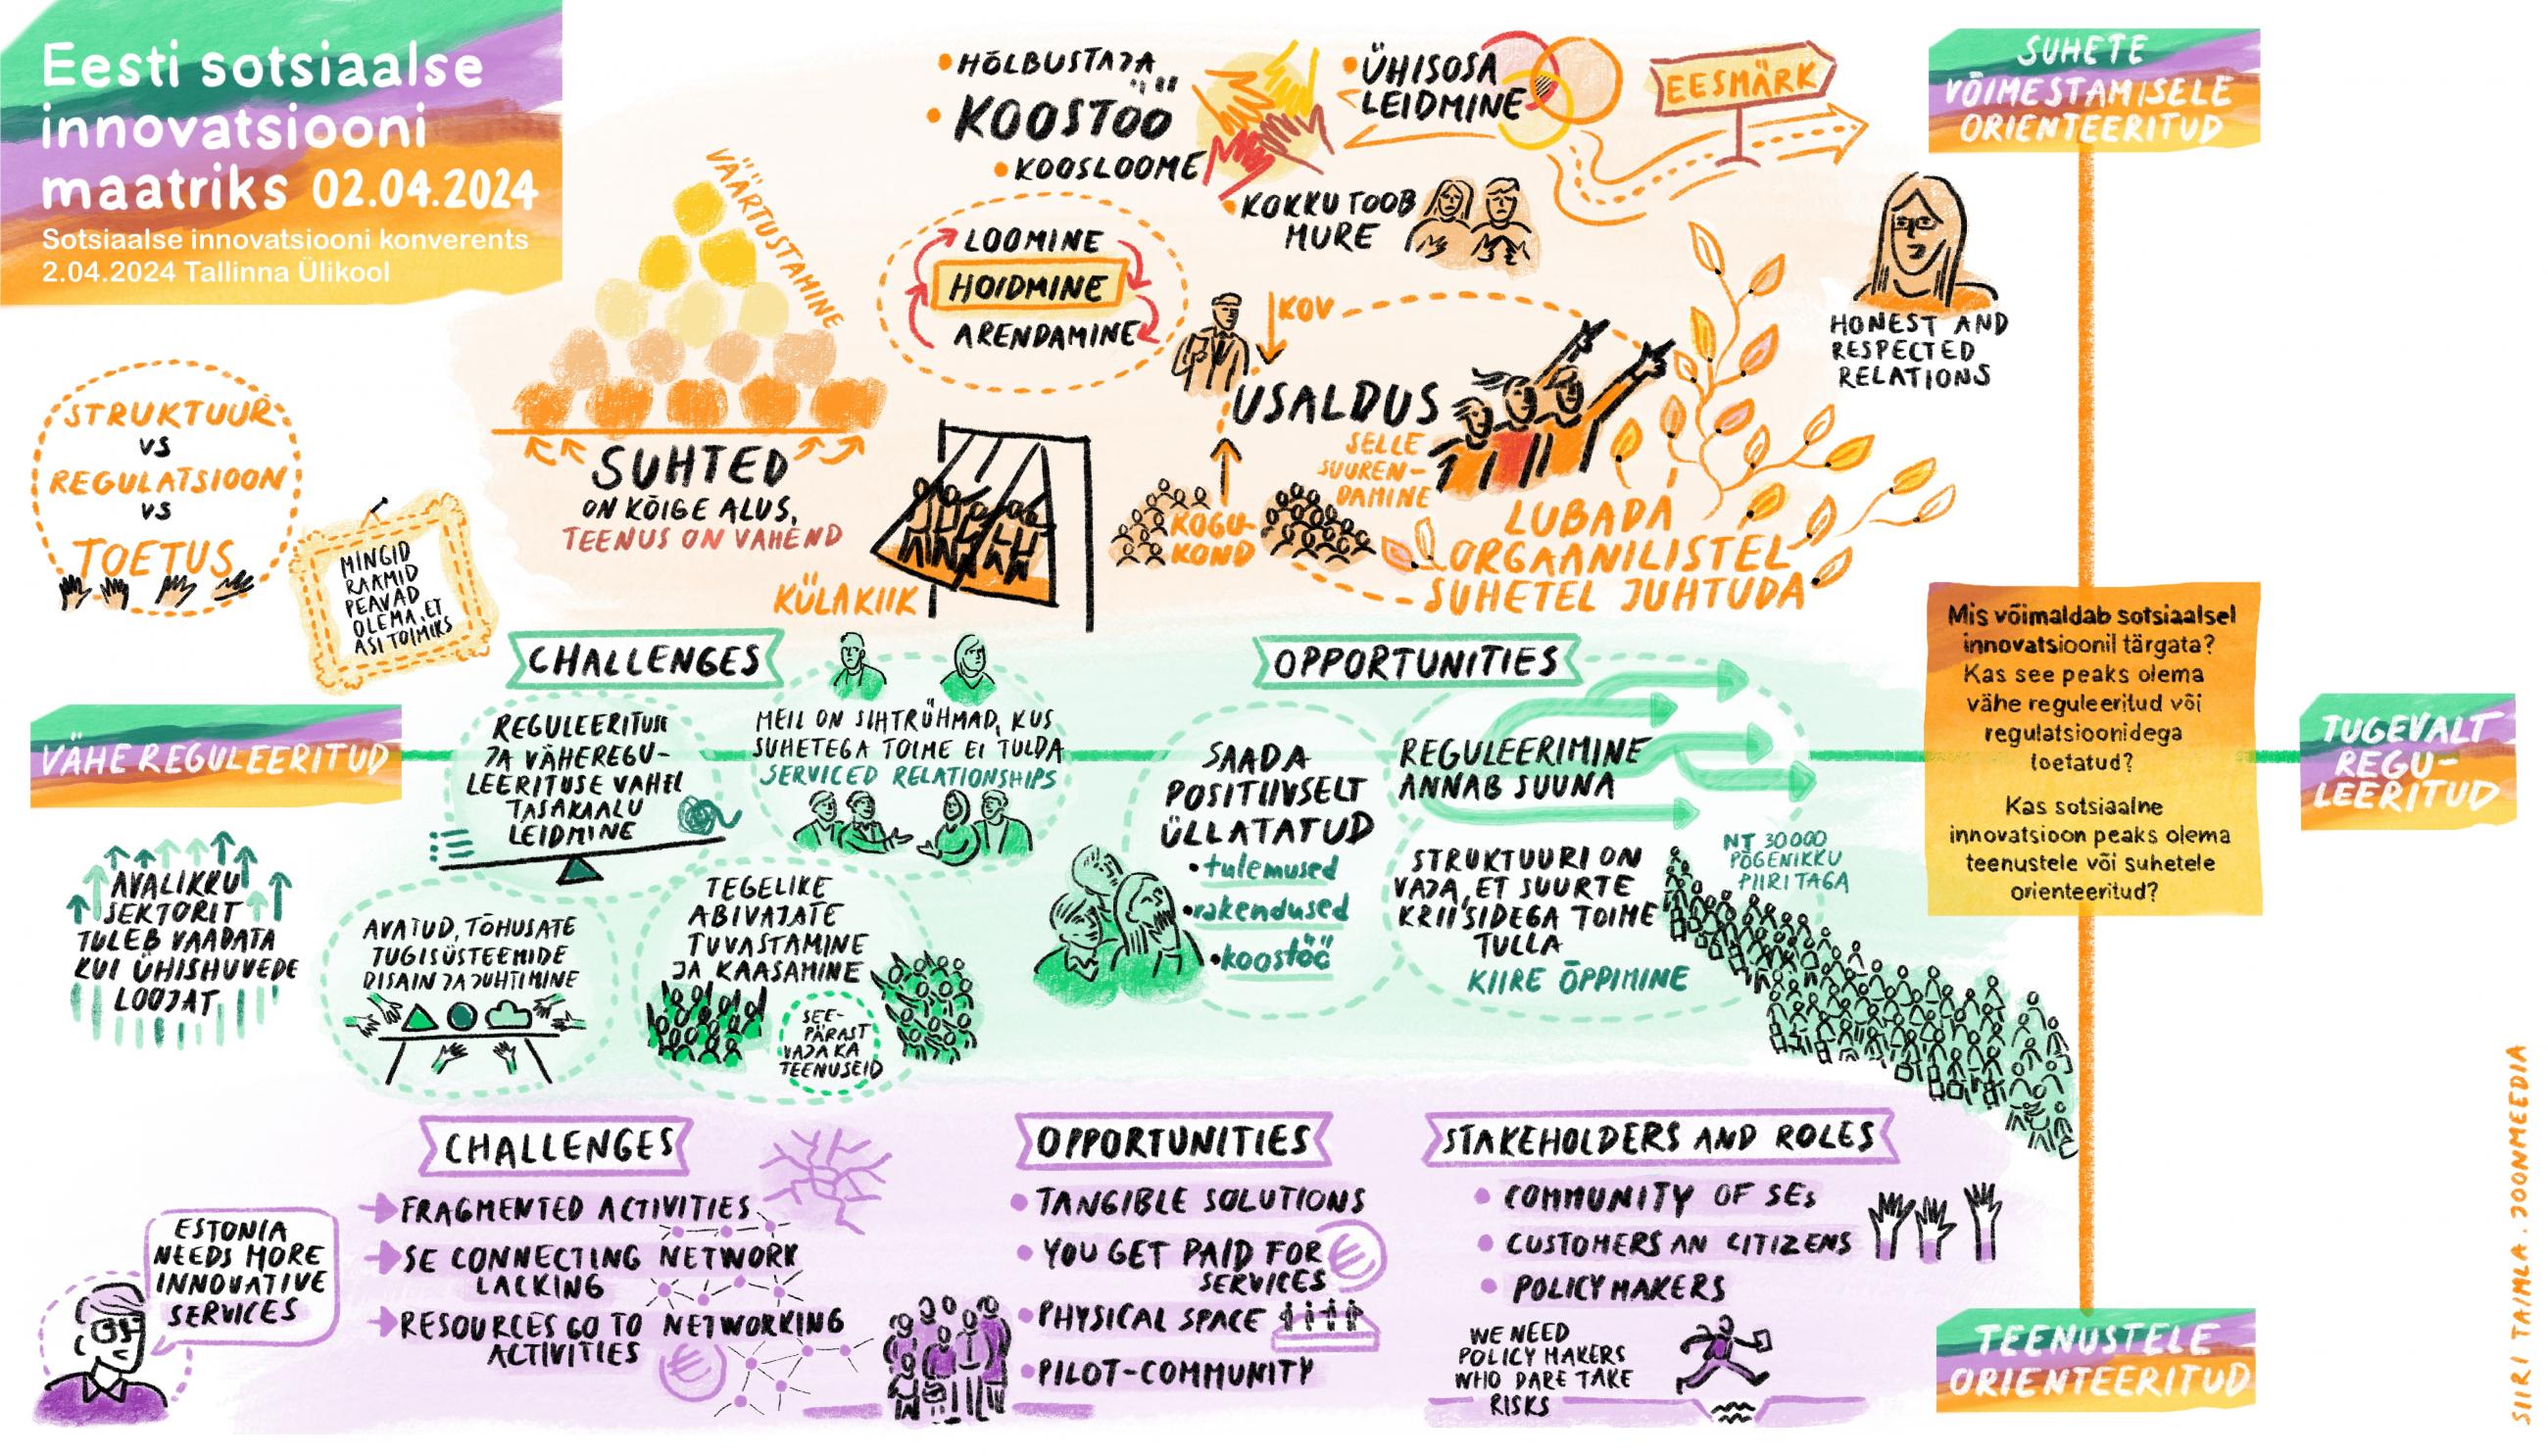 Eesti sotsiaalse
innovatsiooni
maatriks 02.04.2024
Sotsiaalse innovatsiooni konverents
2.04.2024 Tallinna Ülikool
• HÕLBUSTAJA
• KOOSTÖÖ
• KOOSLOOME
• ÜHISOSA
LEIDMINE
EESMÄRK
• KOKKU TOOB
MURE
SUHETE
VÕIMESTAMISELE
ORIENTEERITUD
HONEST AND
RESPECTED
RELATIONS
VÄÄRTUSTAMINE
SUHTED
ON KÕIGE ALUS,
TEENUS ON VAHEND
LOOMINE
HOIDMINE
ARENDAMINE
KÜLAKIIK
KOV
USALDUS
SELLE
SUUREN-
DAMINE
KOGU-
KOND
LUBADA
ORGAANILISTEL
SUHETEL JUHTUDA
STRUKTUUR
VS
REGULATSIOON
VS
TOETUS
MINGID
RAAMID
PEAVAD
OLEMA, ET
ASI TOIMIKS
VÄHE REGULEERITUD
CHALLENGES
REGULEERITUSE
JA VÄHEREGU-
LEERITUSE VAHEL
TASAKAALU
LEIDMINE
MEIL ON SIHTRÜHMAD, KUS
SUHETEGA TOIME EI TULDA
SERVICED RELATIONSHIPS
AVALIKKU
SEKTORIT
TULEB VAADATA
KUI ÜHISHUVEDE
LOOJAT
AVATUD, TÕHUSATE
TUGISÜSTEEMIDE
DISAIN JA JUHTIMINE
TEGELIKE
ABIVAJATE
TUVASTAMINE
JA KAASAMINE
SEE-
PÄRAST
VAJA KA
TEENUSEID
OPPORTUNITIES
SAADA
POSITIIVSELT
ÜLLATATUD
• tulemused
• rakendused
• koostöö
REGULEERIMINE
ANNAB SUUNA
STRUKTUURI ON
VAJA, ET SUURTE
KRIISIDEGA TOIME
TULLA
KIIRE ÕPPIMINE
NT 30 000
PÕGENIKKU
PIIRI TAGA
Mis võimaldab sotsiaalsel
innovatsioonil tärgata?
Kas see peaks olema
vähe reguleeritud või
regulatsioonidega
toetatud?
Kas sotsiaalne
innovatsioon peaks olema
teenustele või suhetele
orienteeritud?
TUGEVALT
REGU-
LEERITUD
ESTONIA
NEEDS MORE
INNOVATIVE
SERVICES
CHALLENGES
FRAGMENTED ACTIVITIES
SE CONNECTING NETWORK
LACKING
RESOURCES GO TO NETWORKING
ACTIVITIES
€
OPPORTUNITIES
• TANGIBLE SOLUTIONS
• YOU GET PAID FOR
SERVICES
€
• PHYSICAL SPACE
• PILOT-COMMUNITY
STAKEHOLDERS AND ROLES
• COMMUNITY OF SEs
• CUSTOMERS AN CITIZENS
• POLICY MAKERS
WE NEED
POLICY MAKERS
WHO DARE TAKE
RISKS
TEENUSTELE
ORIENTEERITUD
SIIRI TAIMLA . JOONMEEDIA